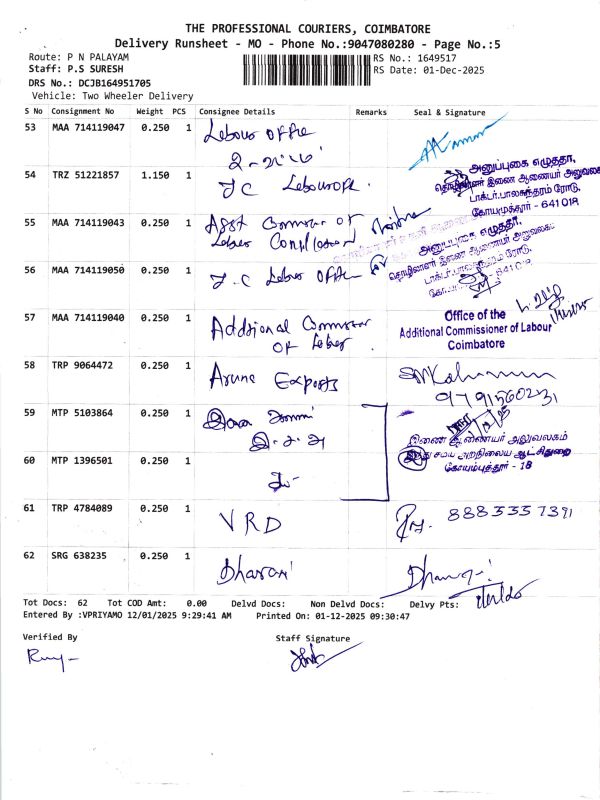 THE PROFESSIONAL COURIERS, COIMBATORE
Delivery Runsheet - MO - Phone No.:9047080280 - Page No.:5
Route: P N PALAYAM
RS No.: 1649517
Staff: P.S SURESH
RS Date: 01-Dec-2025
DRS No.: DCJB164951705
Vehicle: Two Wheeler Delivery
S No Consignment No Weight PCS Consignee Details Remarks Seal & Signature
53 MAA 714119047 0.250 1 Labour Office
54 TRZ 51221857 1.150 1 J C Labour
அனுப்புகை எழுத்தர்,
தொழிலாளர் இணை ஆணையர் அலுவலகம்
டாக்டர்.பாலசுந்தரம் ரோடு,
கோயமுத்தூர் - 641 018
55 MAA 714119043 0.250 1 Asst Commr of
Labour
அனுப்புகை எழுத்தர்,
தொழிலாளர் இணை ஆணையர் அலுவலகம்
டாக்டர்.பாலசுந்தரம் ரோடு,
641 018
56 MAA 714119050 0.250 1 J.C Labour Office
57 MAA 714119040 0.250 1 Additional
of Labour
Office of the
Additional Commissioner of Labour
Coimbatore
58 TRP 9064472 0.250 1 Arune Exports
9791560231
59 MTP 5103864 0.250 1
இ.ச.அ
இணை ஆணையர் அலுவலகம்
இந்து சமய அறநிலைய ஆட்சித்துறை
கோயம்புத்தூர் - 18
60 MTP 1396501 0.250 1
61 TRP 4784089 0.250 1 VRD
62 SRG 638235 0.250 1 Dharani
Tot Docs: 62 Tot COD Amt: 0.00 Delvd Docs: Non Delvd Docs: Delvy Pts:
Entered By :VPRIYAMO 12/01/2025 9:29:41 AM Printed On: 01-12-2025 09:30:47
Verified By
Staff Signature